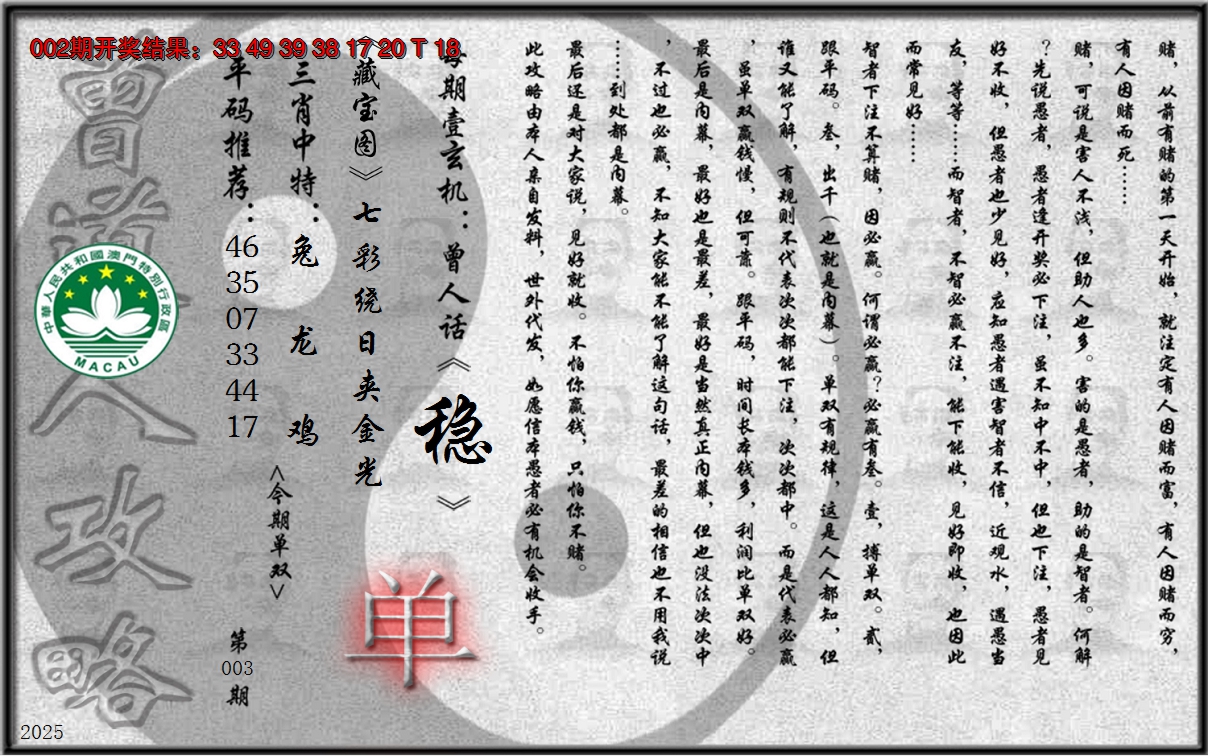 002期开奖结果：33 49 39 38 17 20 T 18
赌，从前有赌的第一天开始，就注定有人因赌而富，有人因赌而穷，
有人因赌而死……
赌，可说是害人不浅，但助人也多。害的是愚者，助的是智者。何解
？先说愚者，愚者逢开奖必下注，虽不知中不中，但也下注，愚者见
好不收，但愚者也少见好，应知愚者遇害智者不信，近观水，遇愚当
友，等等……而智者，不智必赢不注，能下能收，见好即收，也因此
而常见好……
智者下注不算赌，因必赢。何谓必赢？必赢有叁。壹，搏单双。贰，
跟平码。叁，出千（也就是内幕）。单双有规律，这是人人都知，但
谁又能了解，有规则不代表次次都能下注，次次都中。而是代表必赢
，虽单双赢钱慢，但可靠。跟平码，时间长本钱多，利润比单双好。
最后是内幕，最好也是最差，最好是当然真正内幕，但也没法次次中
，不过也必赢，不知大家能不能了解这句话，最差的相信也不用我说
……到处都是内幕。
最后还是对大家说，见好就收。不怕你赢钱，只怕你不赌。
此攻略由本人亲自发料，世外代发，如愿信本愚者必有机会收手。
每期壹玄机：曾人话《稳》
《藏宝图》七彩绕日夹金光
单
三肖中特：兔 龙 鸡
<今期单双>
平码推荐：
46
35
07
33
44
17
第
003
期
曾道人攻略
中華人民共和國澳門特別行政區
MACAU
2025